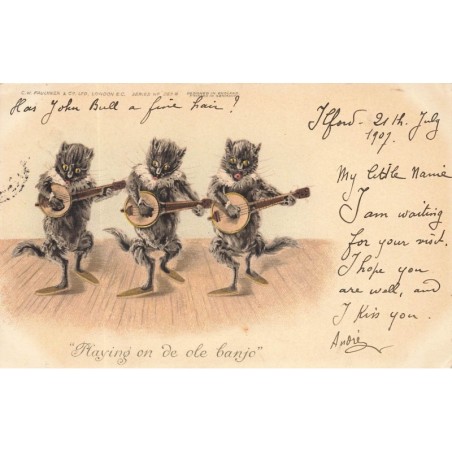 C.W. FAULKNER & CO. LTD., LONDON E.C. SERIES Nº
Has John Bull a fine hair ?
Ilford - 21th. July
1907.
My little Name
I am waiting
for your visit.
I hope you
are well, and
I kiss you.
André
"Playing on de ole banjo"